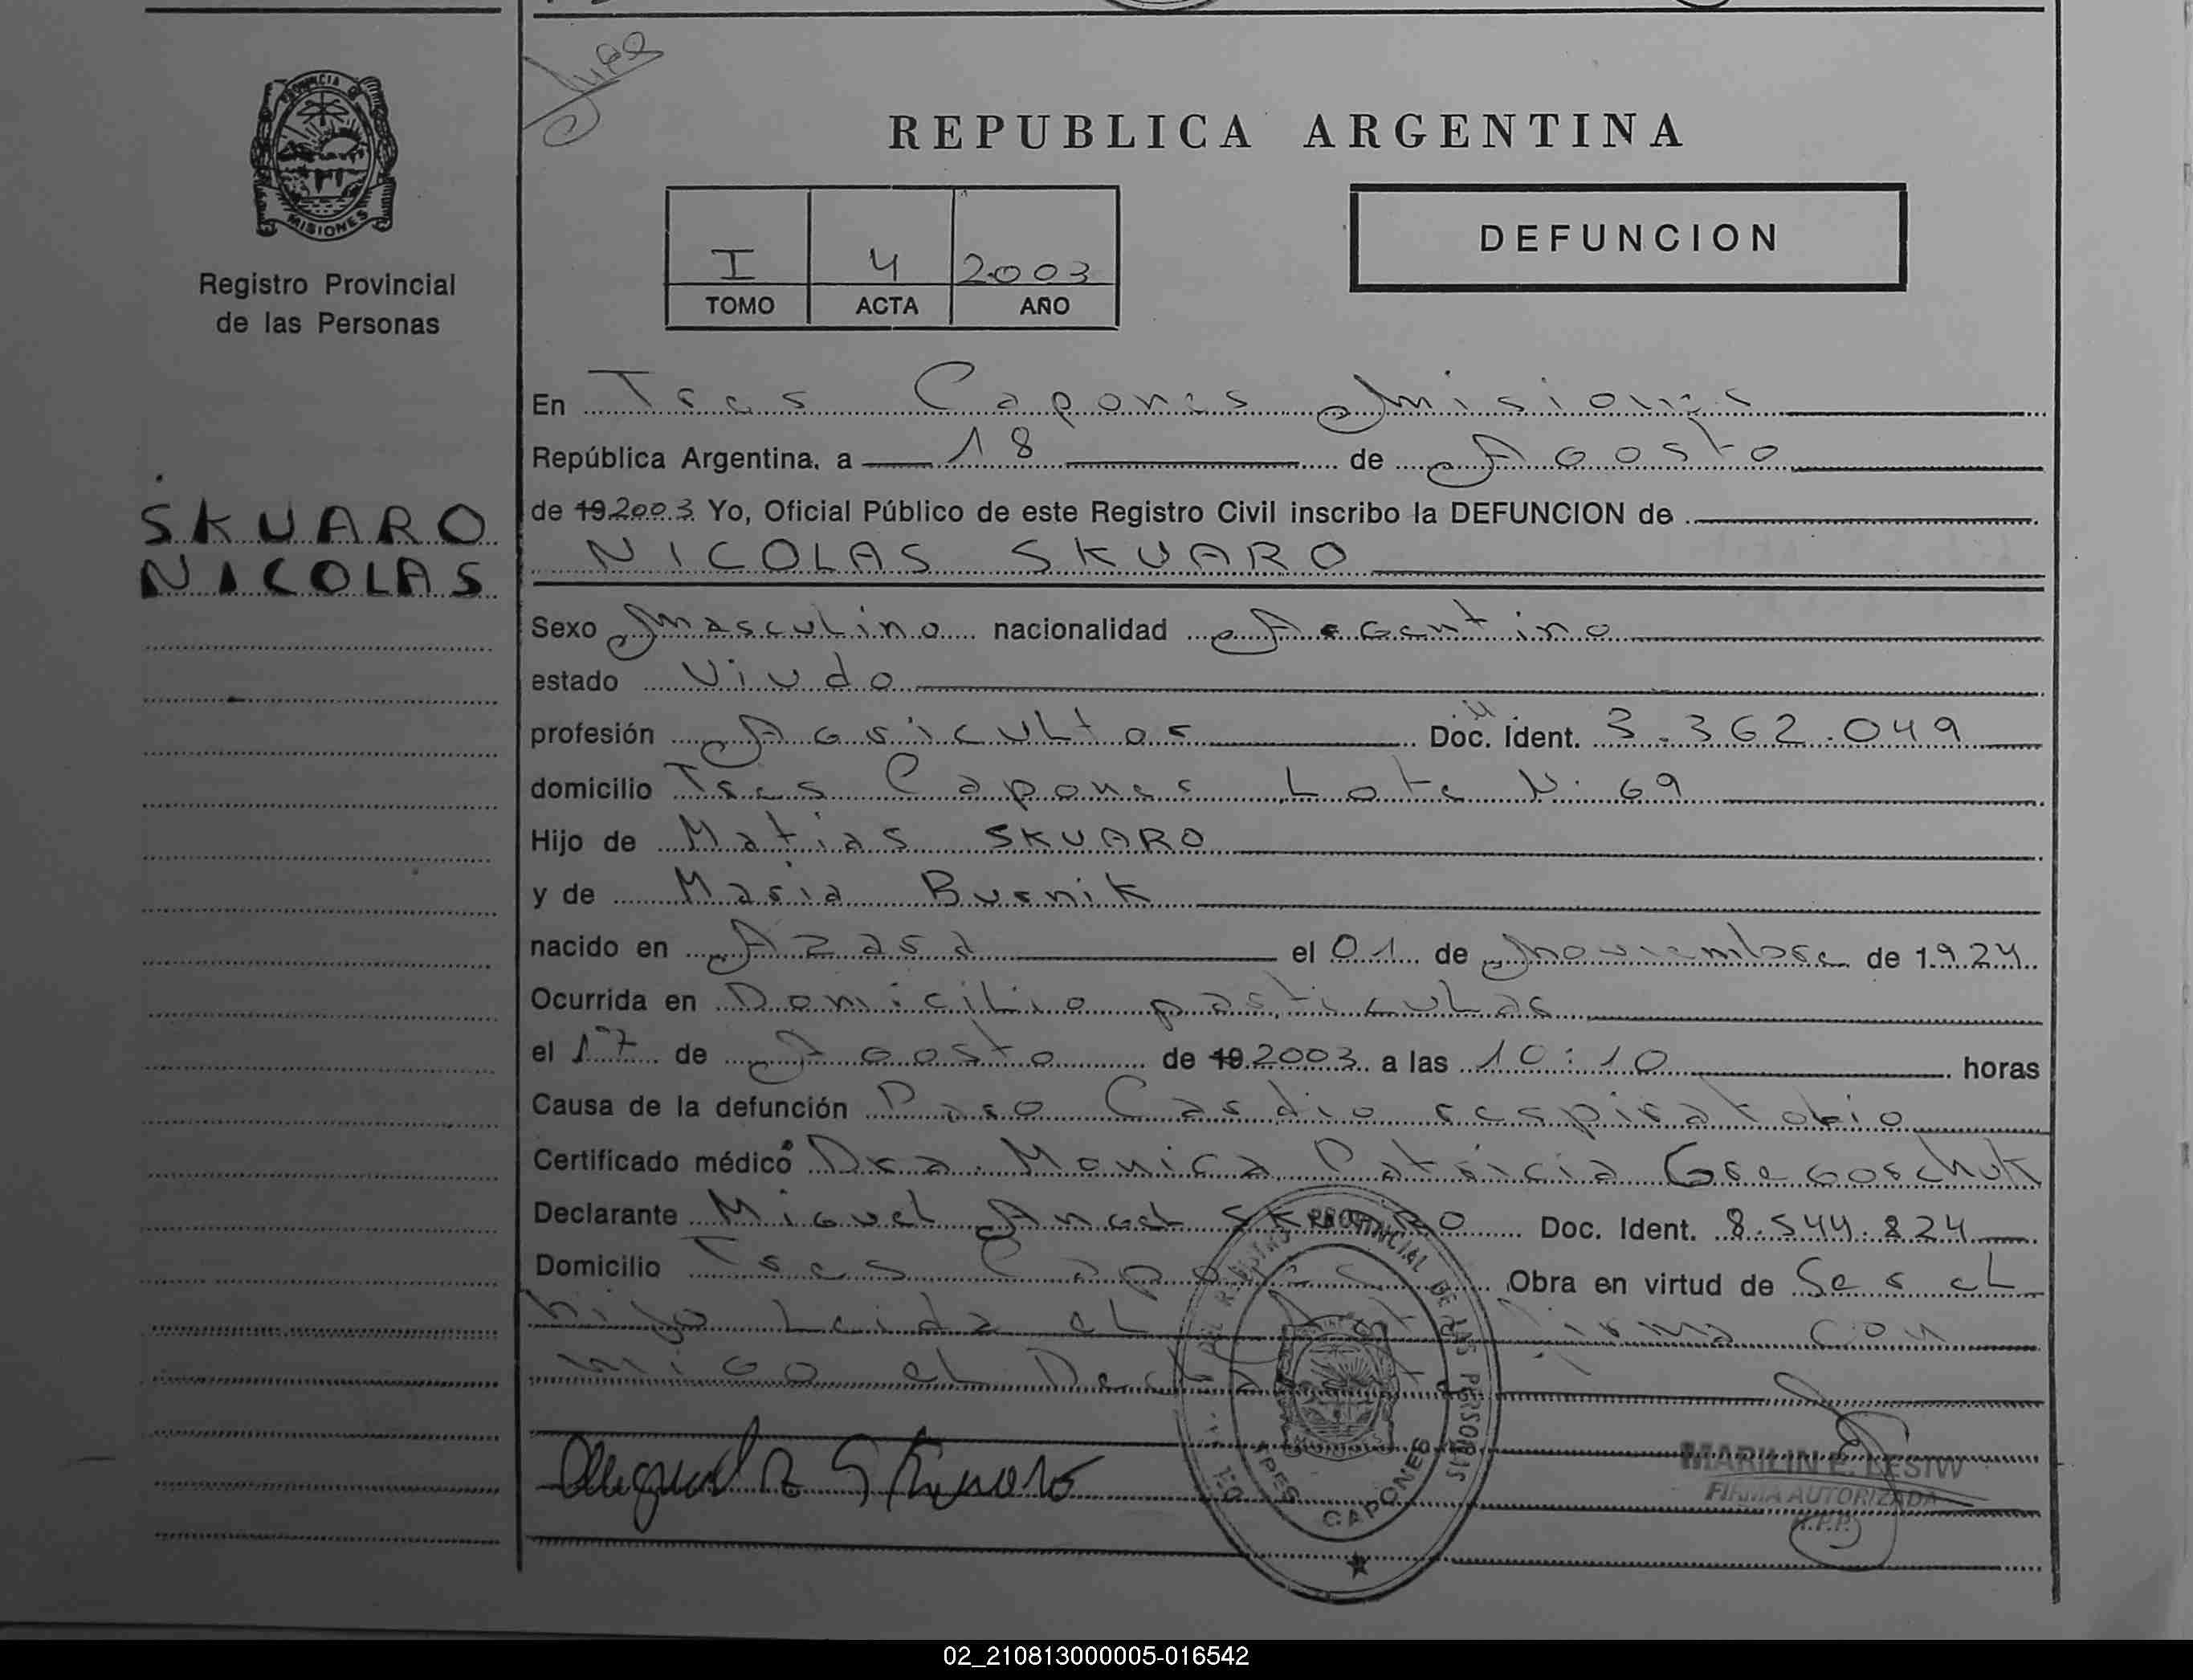 PROVINCIA DE
MISIONES
Registro Provincial
de las Personas
SKUARO
NICOLAS
REPUBLICA ARGENTINA
I 4 2003
TOMO ACTA AÑO
DEFUNCION
En Tres Capones Misiones
República Argentina, a 18 de Agosto
de 19 2003 Yo, Oficial Público de este Registro Civil inscribo la DEFUNCION de
NICOLAS SKUARO
Sexo Masculino nacionalidad Argentino
estado Viudo
profesión Agricultor Doc. Ident. 3.362.049
domicilio Tres Capones Lote N. 69
Hijo de Matias SKUARO
y de Maria Burnik
nacido en Azara el 01 de Noviembre de 1924
Ocurrida en Domicilio particular
el 17 de Agosto de 19 2003 a las 10:10 horas
Causa de la defunción Paro Cardio respiratorio
Certificado médico Dra. Monica Patricia Gregorchuk
Declarante Miguel Angel SKUARO Doc. Ident. 8.544.824
Domicilio Tres Capones Obra en virtud de Ser el
hijo Leida el Acta firma con
migo el Declarante
REGISTRO PROVINCIAL DE LAS PERSONAS
TRES CAPONES
MARILIN E. LESIW
FIRMA AUTORIZADA
R.P.P.
02_210813000005-016542